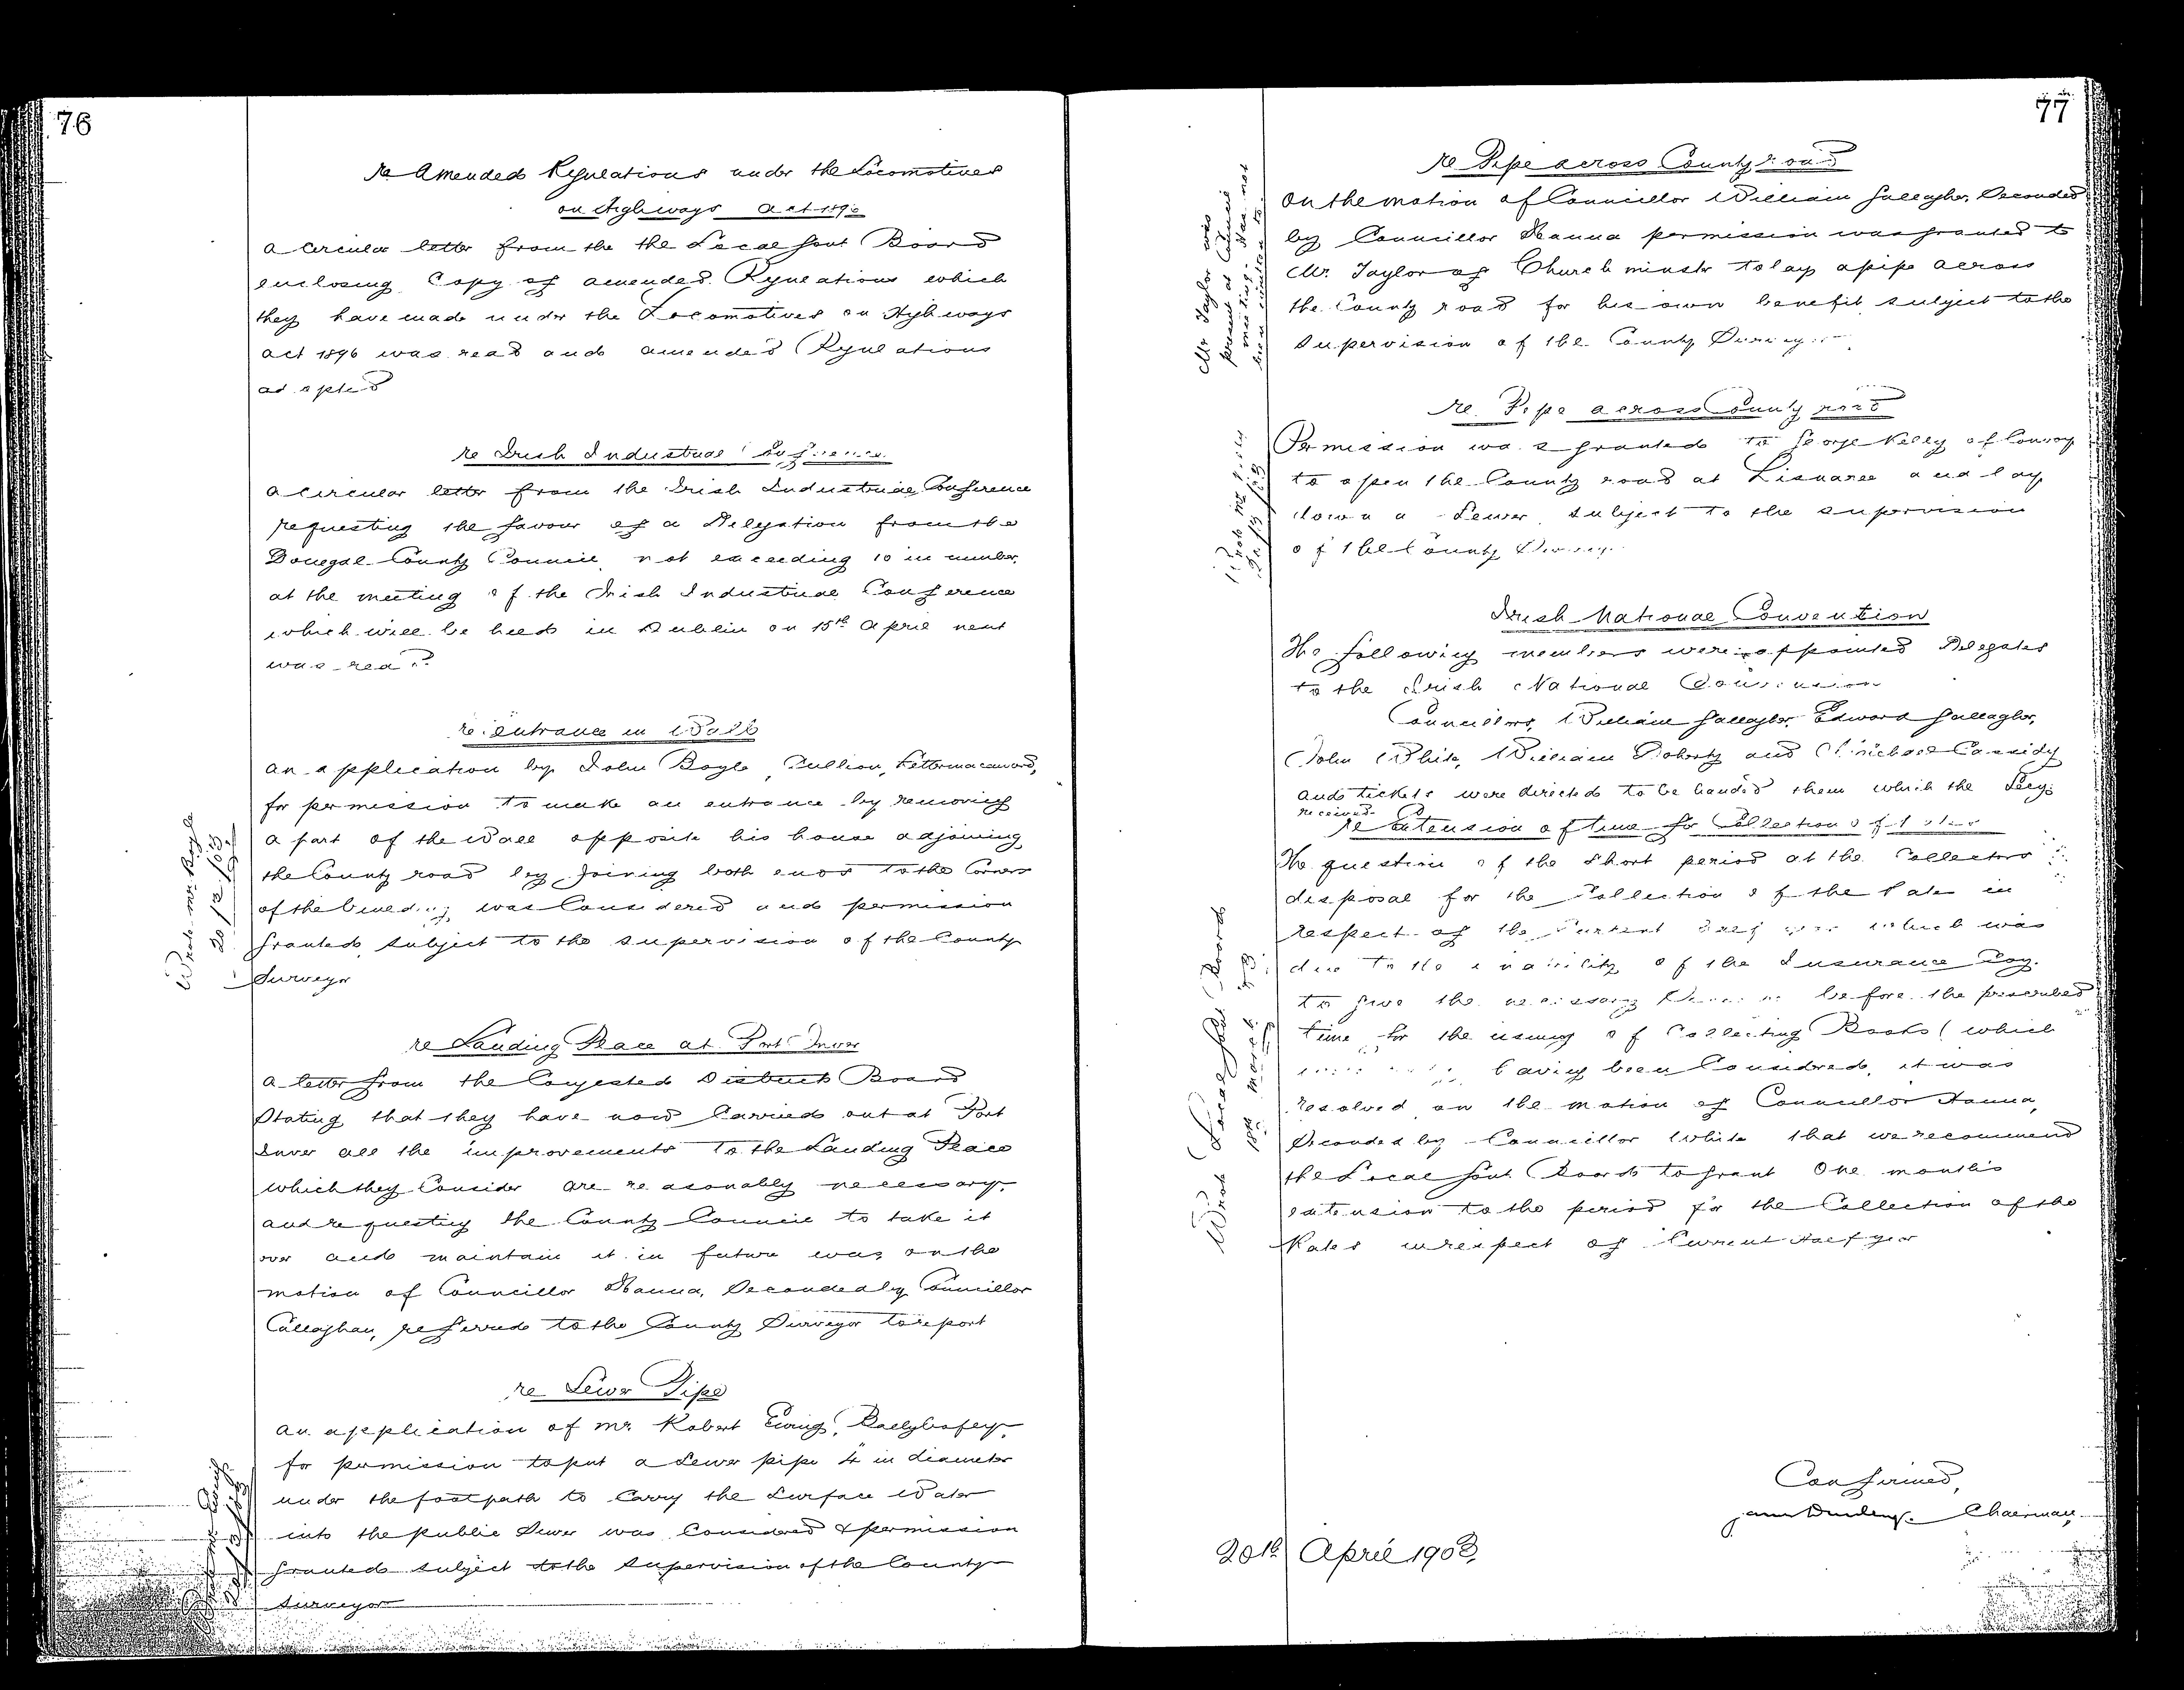 76
re Amended Regulations under the Locomotives
on Highways Act 1896
A Circular letter from the the Local Govt Board
enclosing Copy of amended Regulations which
they have made under the Locomotives on Highways
Act 1896 was read and amended Regulations
adopted
re Irish Industrial Conference
A circular letter from the Irish Industrial Conference
requesting the favour of a Delegation from the
Donegal County Council not exceeding 10 in number,
at the meeting of the Irish Industrial Conference
which will be held in Dublin on 15th April next
was read
re entrance in Wall
An application by John Boyle, Cullion, Lettermacaward,
for permission to make an entrance by removing
a part of the Wall opposite his house adjoining
the County road by joining both ends to the Corners
of the building was Considered and permission
granted subject to the supervision of the County
Surveyor
re Landing Place at Port Inver
A letter from the Congested Districts Board
Stating that they have now Carried out at Port
Inver all the improvements to the Landing Place
which they Consider are reasonably necessary
and requesting the County Council to take it
over and maintain it in future was on the
motion of Councillor Hanna, Seconded by Councillor
Callaghan, referred to the County Surveyor to report
re Sewer Pipe
An application of Mr Robert Ewing, Ballybofey
for permission to put a Sewer pipe 4 in diameter
under the footpath to Carry the Surface Water
into the public Sewer was Considered & permission
granted subject to the supervision of the County
Surveyor
77
re Pipe across County road
On the motion of Councillor William Gallagher, Seconded
by Councillor Hanna permission was granted to
Mr. Taylor of Church minster to lay a pipe across
the County road for his own benefit subject to the
Supervision of the County Surveyor
Mr Taylor was
present at Council
meeting. Has not
been written to
re Pipe across County road
Permission was granted to George Kelly of Convoy
to open the County road at Lisnaree and lay
down a Sewer subject to the supervision
of the County Surveyor
Irish National Convention
The following members were appointed Delegates
to the Irish National Convention
Councillors, William Gallagher, Edward Gallagher,
John White, William Doherty and Michael Cassidy
and tickets were directed to be handed them which the Secy
received
re extension of time for Collection of rates
The question of the short period at the Collectors
disposal for the Collection of the Rate in
respect of the Current half year which was
due to the inability of the Insurance Coy.
to give the necessary before the prescribed
time for the issuing of Collecting Books (which
having been Considered, it was
resolved on the motion of Councillor Hanna,
Seconded by Councillor White that we recommend
the Local Govt Board to grant One months
extension to the period for the Collection of the
Rates in respect of Current Half year
Confirmed,
Chairman
20th April 1903